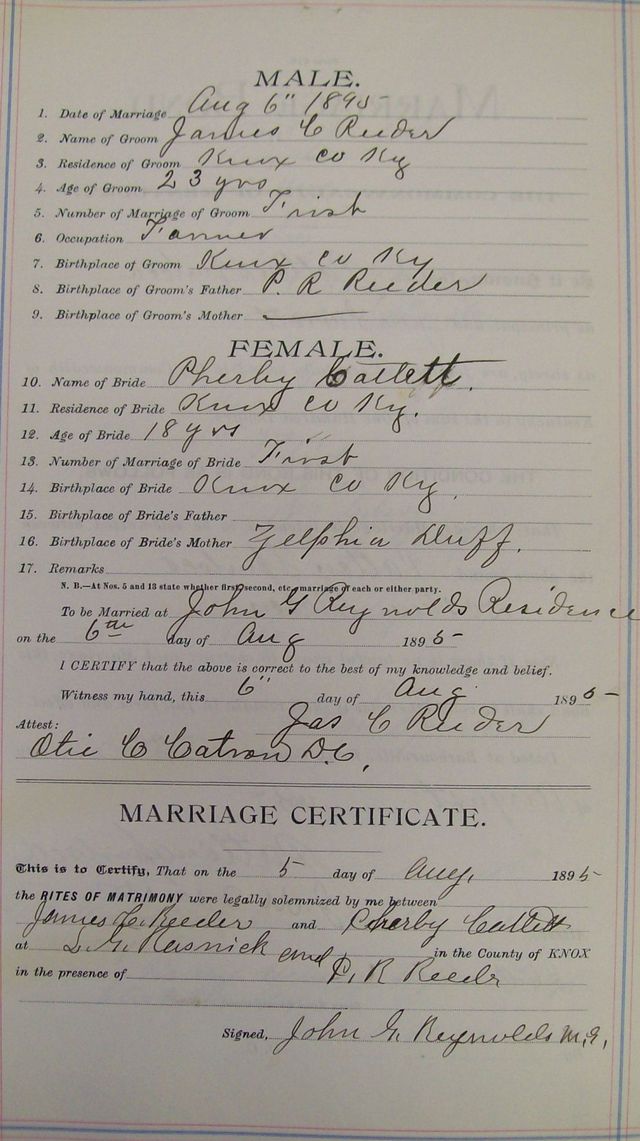 MALE.
1. Date of Marriage Aug 6" 1895
2. Name of Groom James C Reeder
3. Residence of Groom Knox Co Ky
4. Age of Groom 23 yrs
5. Number of Marriage of Groom First
6. Occupation Farmer
7. Birthplace of Groom Knox Co Ky
8. Birthplace of Groom's Father P. R Reeder
9. Birthplace of Groom's Mother —
FEMALE.
10. Name of Bride Pherby Catlett.
11. Residence of Bride Knox Co Ky.
12. Age of Bride 18 yrs
13. Number of Marriage of Bride First
14. Birthplace of Bride Knox Co Ky.
15. Birthplace of Bride's Father
16. Birthplace of Bride's Mother Zelphia Duff.
17. Remarks
N. B.—At Nos. 5 and 13 state whether first, second, etc., marriage of each or either party.
To be Married at John G Reynolds Residence
on the 6th day of Aug 1895
I CERTIFY that the above is correct to the best of my knowledge and belief.
Witness my hand, this 6" day of Aug 1895
Jas C Reeder
Attest:
Otie C Catron D.C,
MARRIAGE CERTIFICATE.
This is to Certify, That on the 5 day of Aug, 1895
the RITES OF MATRIMONY were legally solemnized by me between
James C. Reeder and Pherby Catlett
at in the County of KNOX
in the presence of and P. R Reeder
Signed, John G. Reynolds M.G,